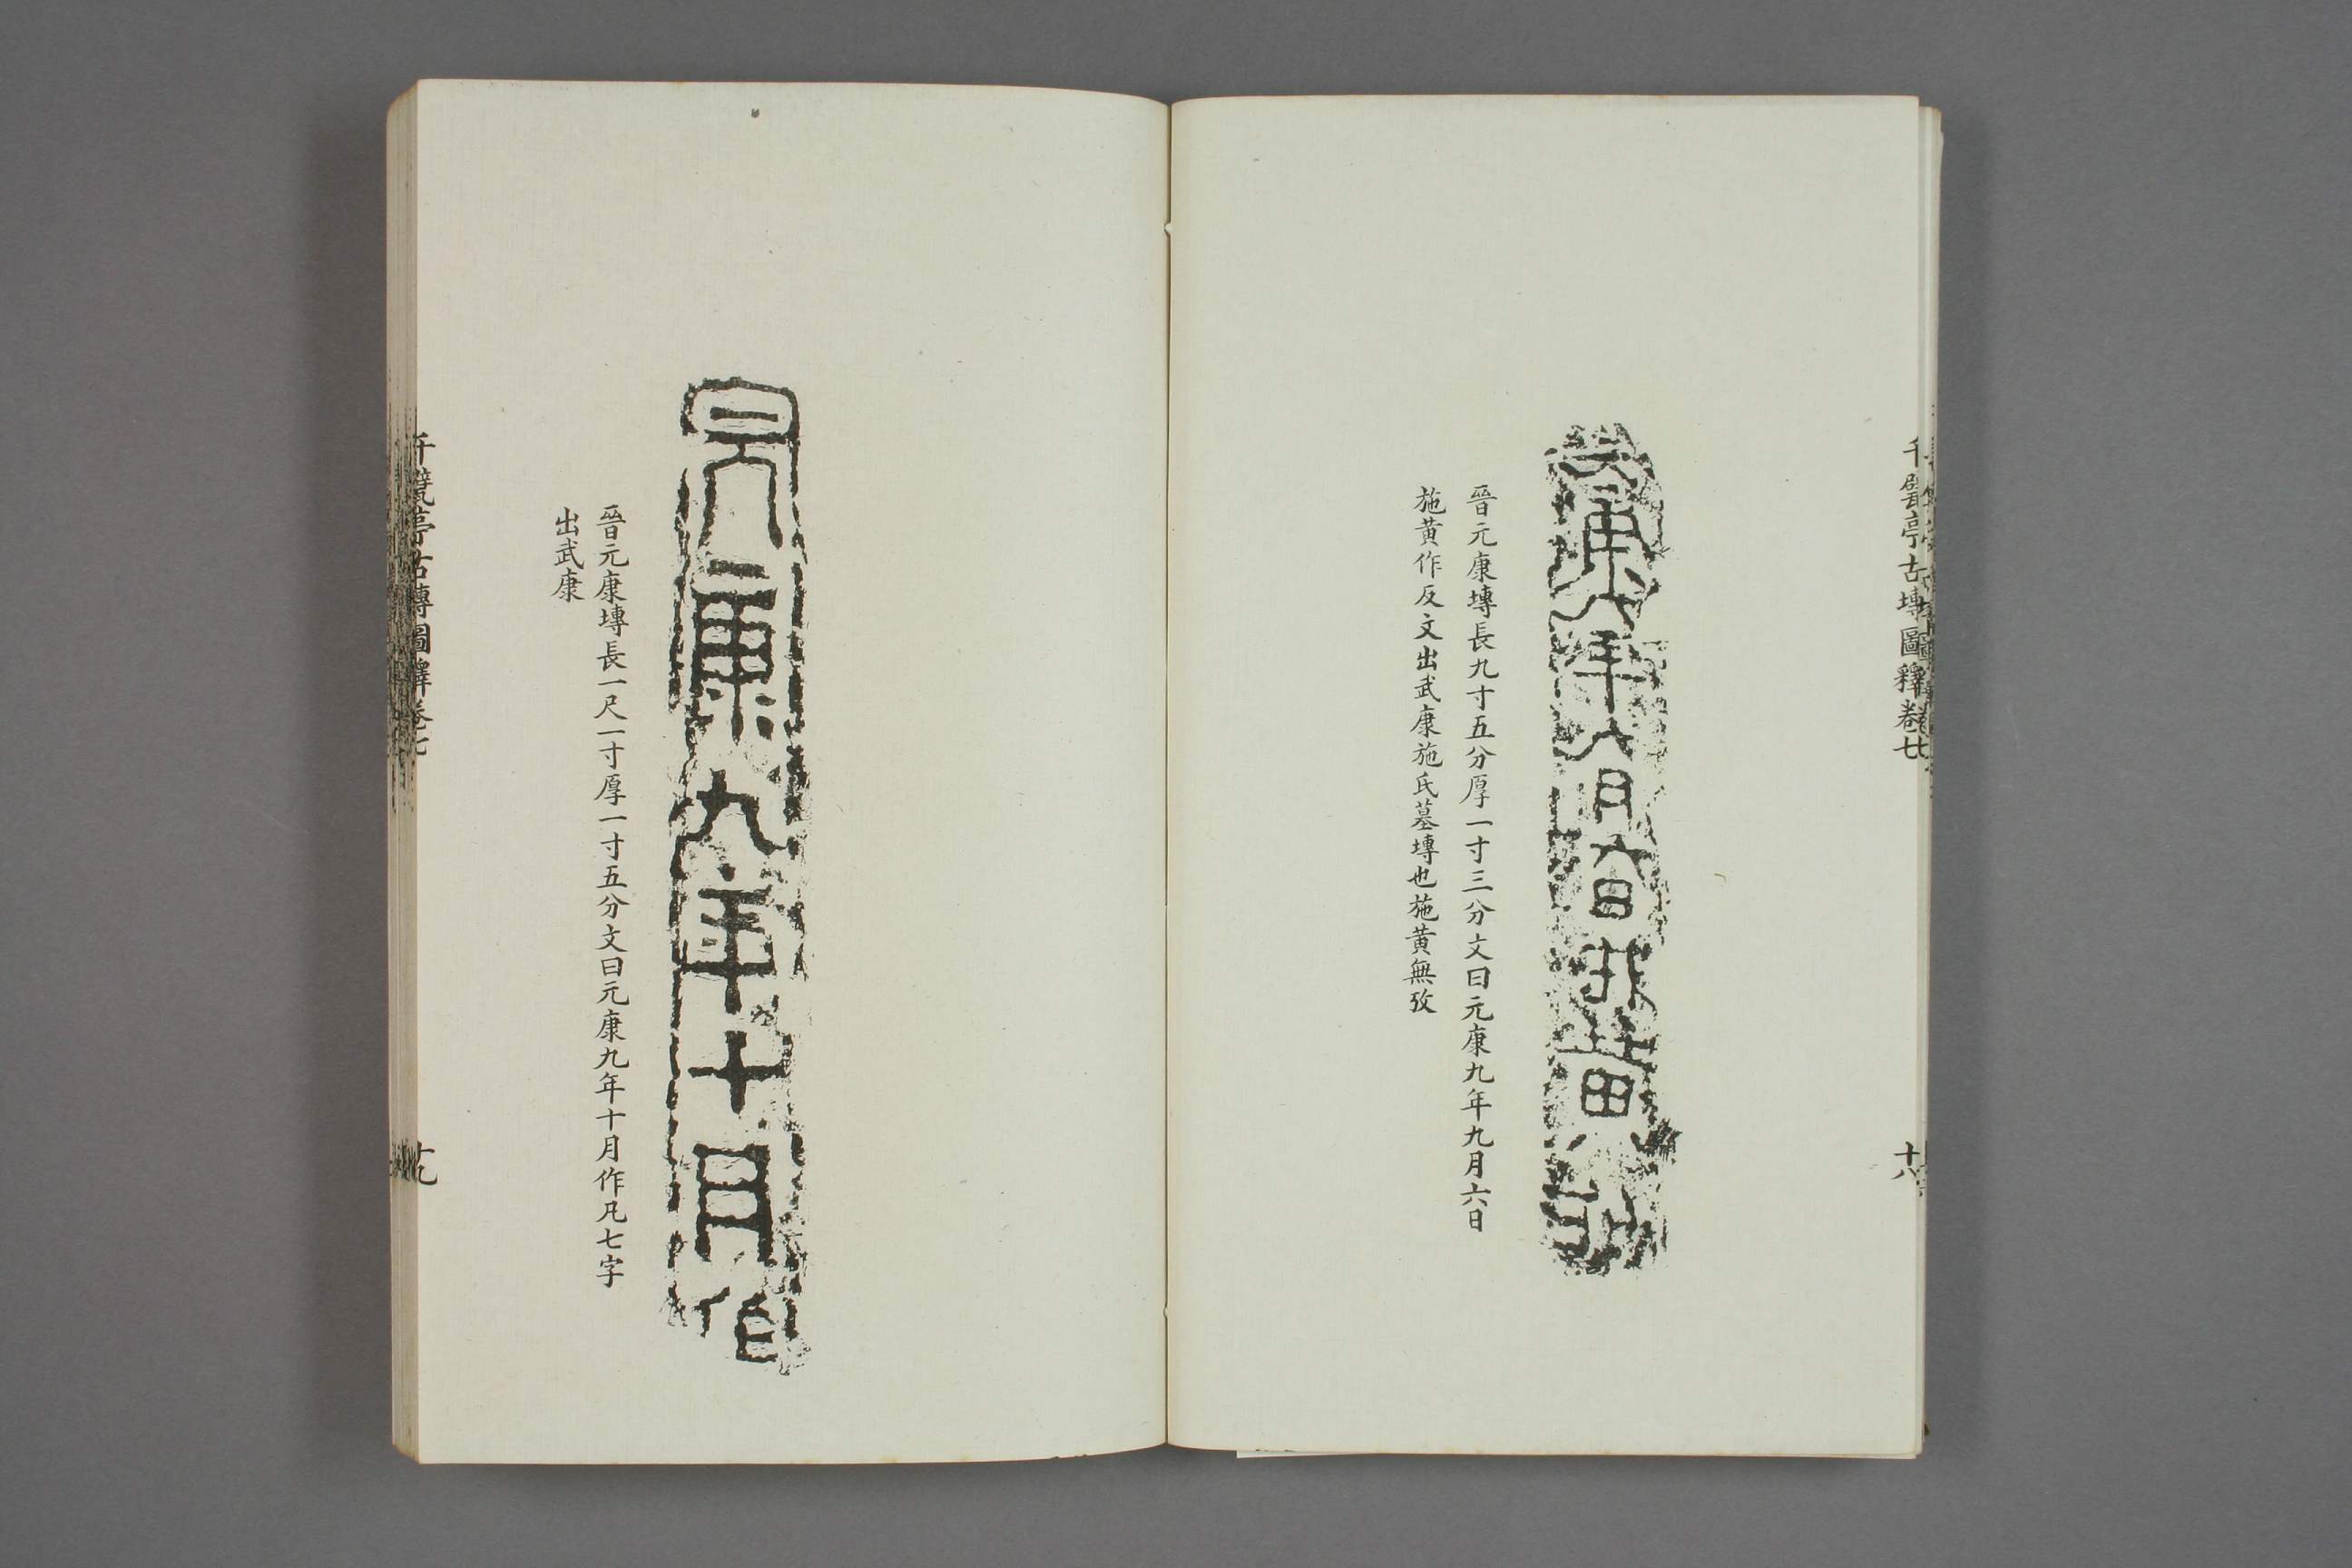 千甓亭古塼圖釋卷七
十八
元康九年九月六日施黃作
晉元康塼長九寸五分厚一寸三分文曰元康九年九月六日
施黃作反文出武康施氏墓塼也施黃無攷
元康九年十月作
晉元康塼長一尺一寸厚一寸五分文曰元康九年十月作凡七字
出武康
千甓亭古塼圖釋卷七
十九